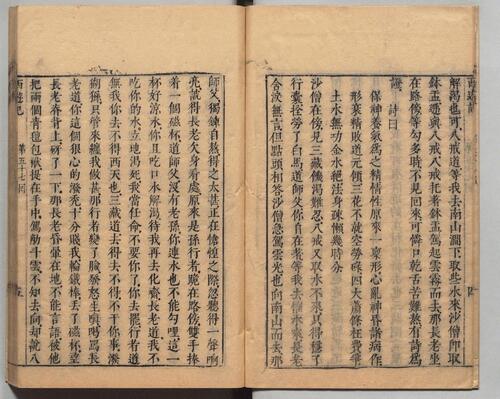 西遊記
解渴也可八戒道等我去南山澗下取些水來沙僧即取
鉢盂遞與八戒八戒托着鉢盂駕起雲霧而去那長老坐
在路傍等勾多時不見回來可憐口乾舌苦難熬有詩爲
證詩曰
保神養氣爲之精情性原來一稟形心亂神昏諸病作
形衰精敗道元傾三花不就空勞碌四大蕭條枉費爭
土木無功金水絶法身疎懶幾時分
沙僧在傍見三藏饑渴難忍八戒又取水不來只得穩了
行囊拴牢了白馬道師父你自在着等我去催水來長老
含淚無言但點頭相答沙僧急駕雲光也向南山而去那
師父獨鍊自熬得之太甚正在愴惶之際忽聽得一聲响
喨諕得長老欠身看處原來是孫行者跪在路傍雙手捧
着一個磁杯道師父沒有老孫你連水也不能勾哩這一
杯好凉水你且吃口水解渴待我再去化齋長老道我不
吃你的水立地渴死我當任命不要你了你去罷行者道
無我你去不得西天也三藏道去得去不得不干你事潑
猢猻只管來纏我做甚那行者變了臉發怒生嗔喝罵長
老道你這個狠心的潑禿十分賤我輪鐵棒丢了磁杯望
長老脊背上砑了一下那長老昏暈在地不能言語被他
把兩個青氊包袱提在手中駕觔斗雲不知去向却說八
西遊記
第五十七回
五